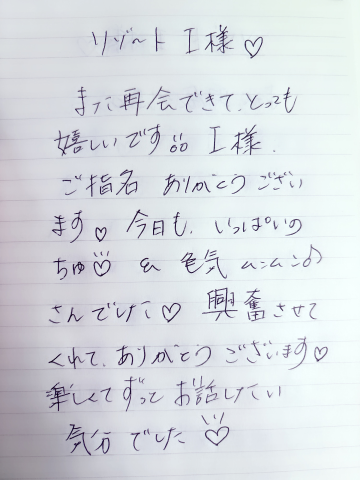 リゾート I様♡
また再会できて、とっても
嬉しいです。。 I様、
ご指名 ありがとうござい
ます♡ 今日も、いっぱいの
ちゅ♡ & 色気 ムンムン♪
さんでした♡ 興奮させて
くれて、ありがとうございます♡
楽しくてずっとお話したい
気分でした♡